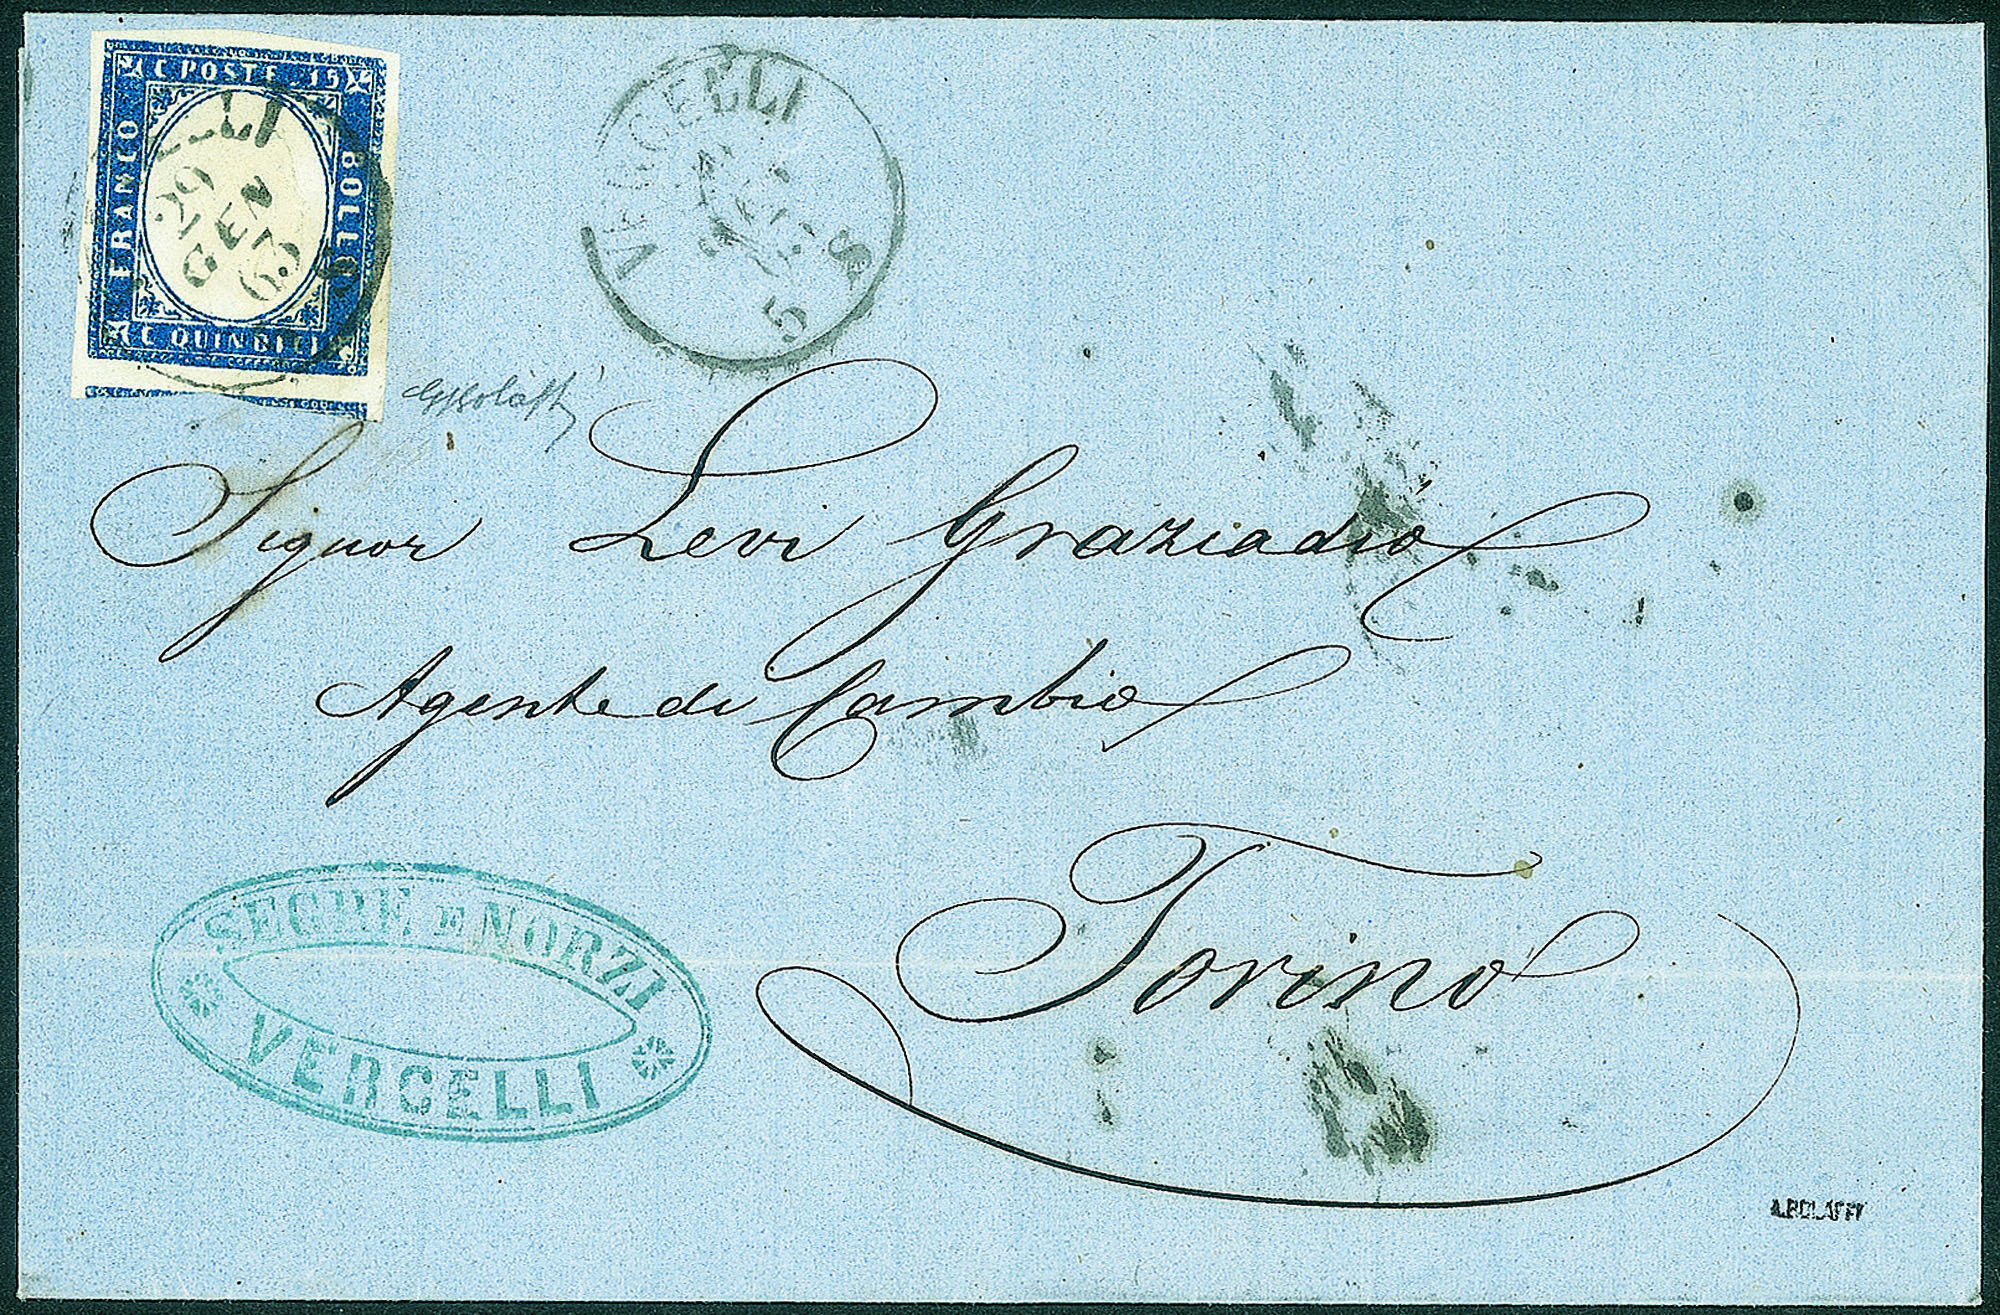 C POSTE 15
FRANCO
BOLLO
C QUINDICI
29
GEN
63
VERCELLI
5 S
Signor Levi Graziadio
Agente di Cambio
Torino
SEGRE E NORZI
VERCELLI
A.BOLAFFI